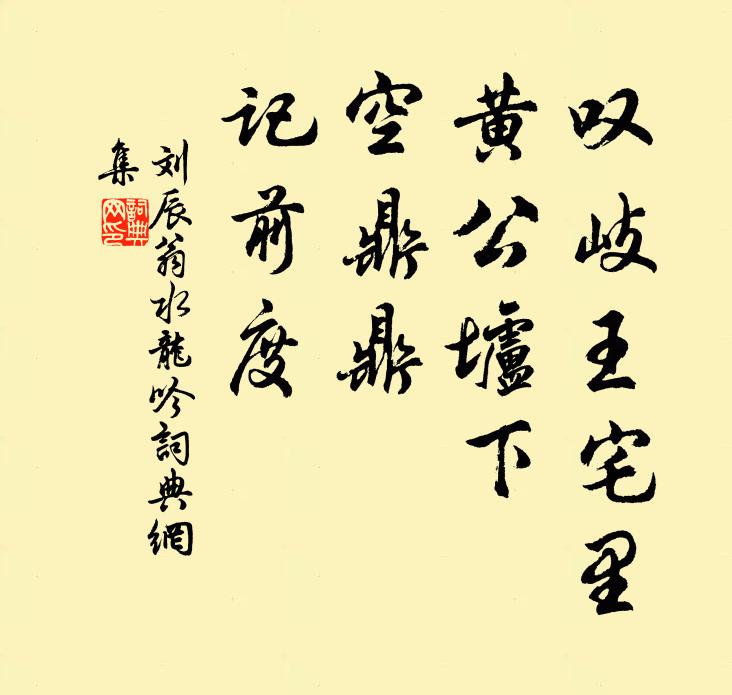 叹岐王宅里
黄公壚下
空鼎鼎
记前度
刘辰翁水龍吟詞典網
集
詞典网印